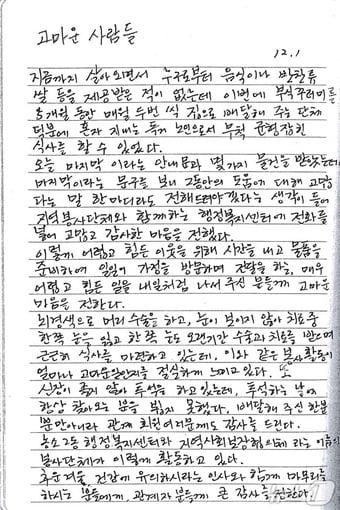 고마운 사람들
12.1
지금까지 살아오면서 누구로부터 음식이나 반찬류
쌀 등을 제공받은 적이 없는데 이번에 부식꾸러미를
개월 동안 매월 두번 씩 집으로 배달해 주는 단체
덕분에 혼자 지내는 독거 노인으로서 무척 균형잡힌
식사를 할 수 있었다.
오늘 마지막 이라는 안내문과 몇가지 물건을 받았는데
마지막이라는 문구를 보니 그동안의 도움에 대해 고맙
다는 말 한마디라도 전해드려야겠다는 생각이 들어
지역봉사단체와 함께하는 행정복지센터에 전화를
걸어 고맙고 감사한 마음을 전했다.
이렇게 어렵고 힘든 이웃을 위해 시간을 내고 물품을
준비하여 일일이 가정을 방문하며 전달을 하는, 매우
어렵고 힘든 일을 내일처럼 나서 주신 분들께 고마운
마음을 전한다.
뇌경색으로 머리 수술을 하고, 눈이 보이지 않아 치료중
한쪽 눈을 잃고 한쪽 눈도 오랜기간 수술과 치료를 받으며
근근히 식사를 마련하고 있는데, 이와 같은 봉사활동이
얼마나 고마운일인지를 절실하게 느끼고 있다. 또
신장이 좋지 않아 투석을 하고 있는데, 투석하는 날에
항상 찾아오는 분을 뵙지 못했다. 배달해 주신 한분
뿐만아니라 관계 회원여러분께도 감사를 드린다.
농소2동 행정복지센터와 지역사회보장협의체 라는 이름의
봉사단체가 이렇게 활동하고 있다.
추운겨울, 건강에 유의하시라는 인사와 함께 마무리를
하시는 분들에게, 관계자 분들께 큰 감사를 전한다.
뉴스1